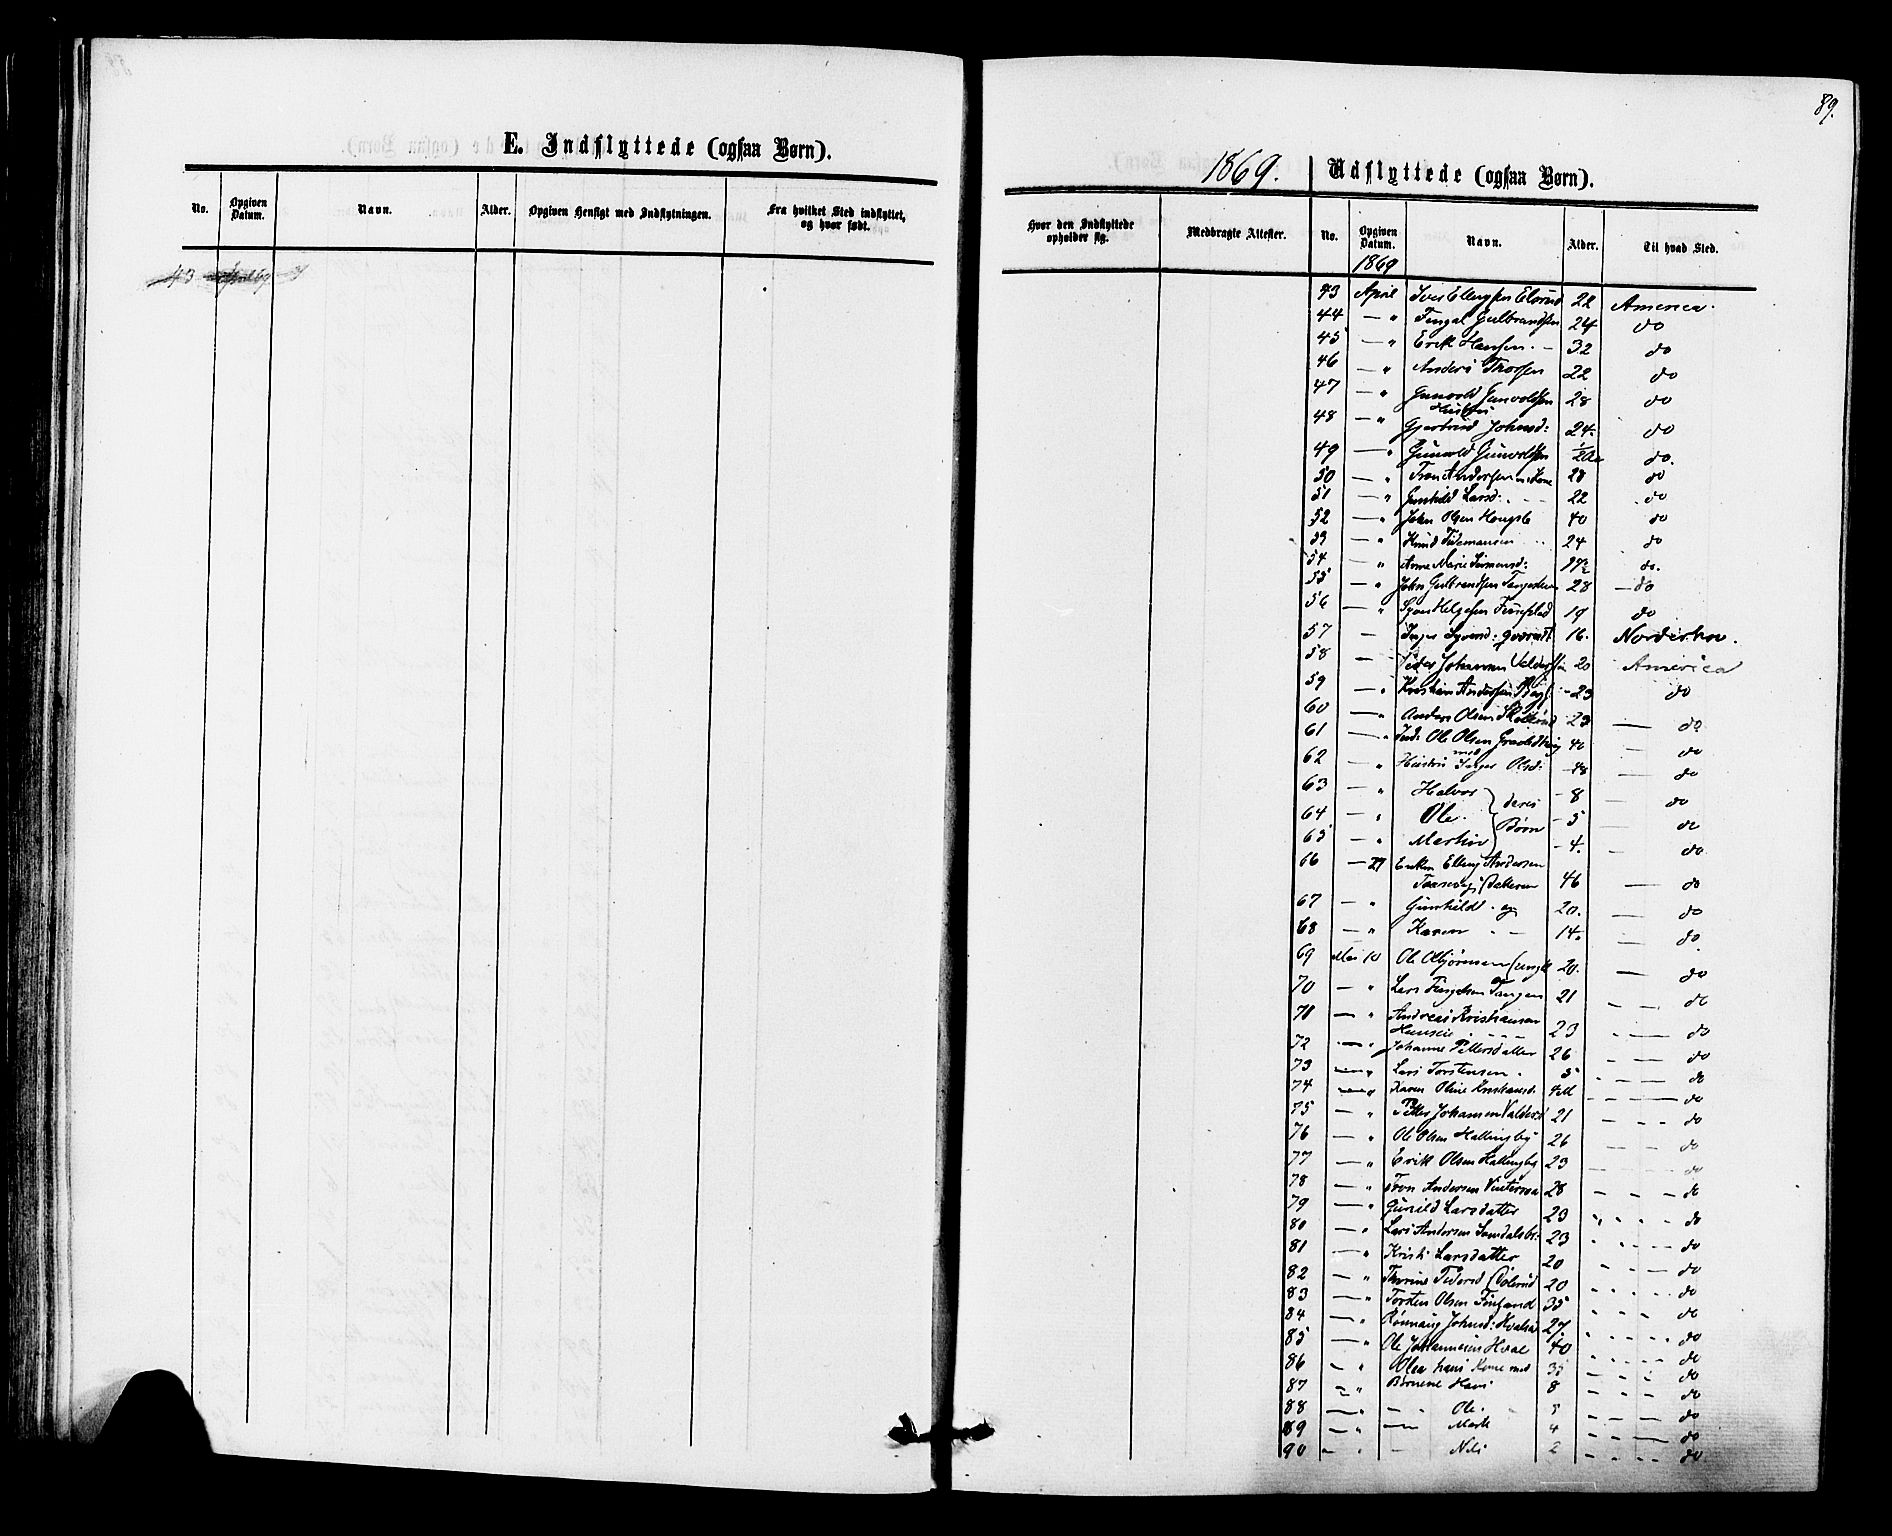 89.
E. Indflyttede (ogsaa Børn).
No. Opgiven Datum. Navn. Alder. Opgiven Hensigt med Indflytningen. Fra hvilket Sted indflyttet, og hvor født.
43
1869. Udflyttede (ogsaa Børn).
Hvor den Indflyttede opholder sig. Medbragte Attester. No. Opgiven Datum. Navn. Alder. Til hvad Sted.
1869
43 April Iver Ellingsen Elsrud 22 America.
44 — " Fingal Gulbrandsen 24 do
45 — " Erik Hansen 32 do
46 — " Anders Thorsen 22 do
47 — " Gunvold Gunvoldsen 28 do
Hustru
48 — " Gjertrud Johnsd: 24. do
49 — " Gunvold Gunvoldsen 1/2 Aar do.
50 — " Tron Andersen m Kone 28 do
51 — " Gunhild Larsd: 22 do
52 — " John Olsen 40 do
53 — " Knud Tidemansen 24 do
54 " Anne Marie do.
55 — " John Gulbrandsen 28 — do
56 — " Syver Helgesen 19 do
57 — Inger Syversd: 16. Norderhov.
58 — Peder Johannesen 20 America
59 — " Kristian Andersen 23 do
60 — " Anders Olsen 23 — do
61 — " Ind: Ole Olsen 40 — do
med
62 " Hustru Inger Olsd: 48 — do
63 — " Halvor } deres 8 — do
64 — " Ole. } Børn 5 — do
65 — " Martin } 4. — do
66 — 27 Enken Elling Andersen
Døtteren 46 — do
67 — " Gunhild og 20. — do
68 — " Karen 14. — do
69 Mai 10 Ole 20. — do
70 — " Lars Fingalsen Tangen 21 — do
71 — " Andreas Kristiansen
23 — do
72 — " Johanne Pettersdatter 26 — do
73 — " Lars Torstensen 5 — do
74 — " Karen Oline Kristiansd: 4 M — do
75 — " Petter Johansen 21 — do
76 — " Ole Olsen Hallingby 26 — do
77 — " Erik Olsen Hallingby 23 — do
78 — " Tron Andersen 28 — do
79 — " Gunild Larsdatter 23 do
80 — " Lars Andersen 23 do
81 — " Kristi Larsdatter 20 do
82 — " Thorine Pedersd 20 do
83 — " Torsten Olsen 35 do
84 — " Rønnaug Johnsd: 27 do
85 — " Ole Johannesen Hval 40 do
86 — " Olea hans Kone med 35 do
87 — " Børnene Hans 8 do
88 — " — Ole. 5 do
89 — " — 4 do
90 — " — 2 do